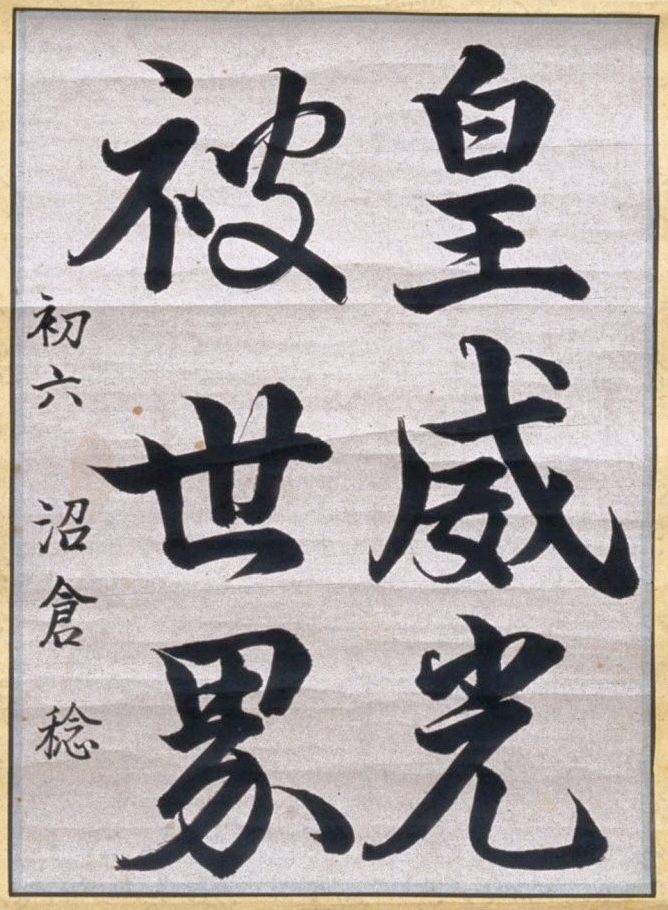 皇威光
被世界
初六 沼倉 稔